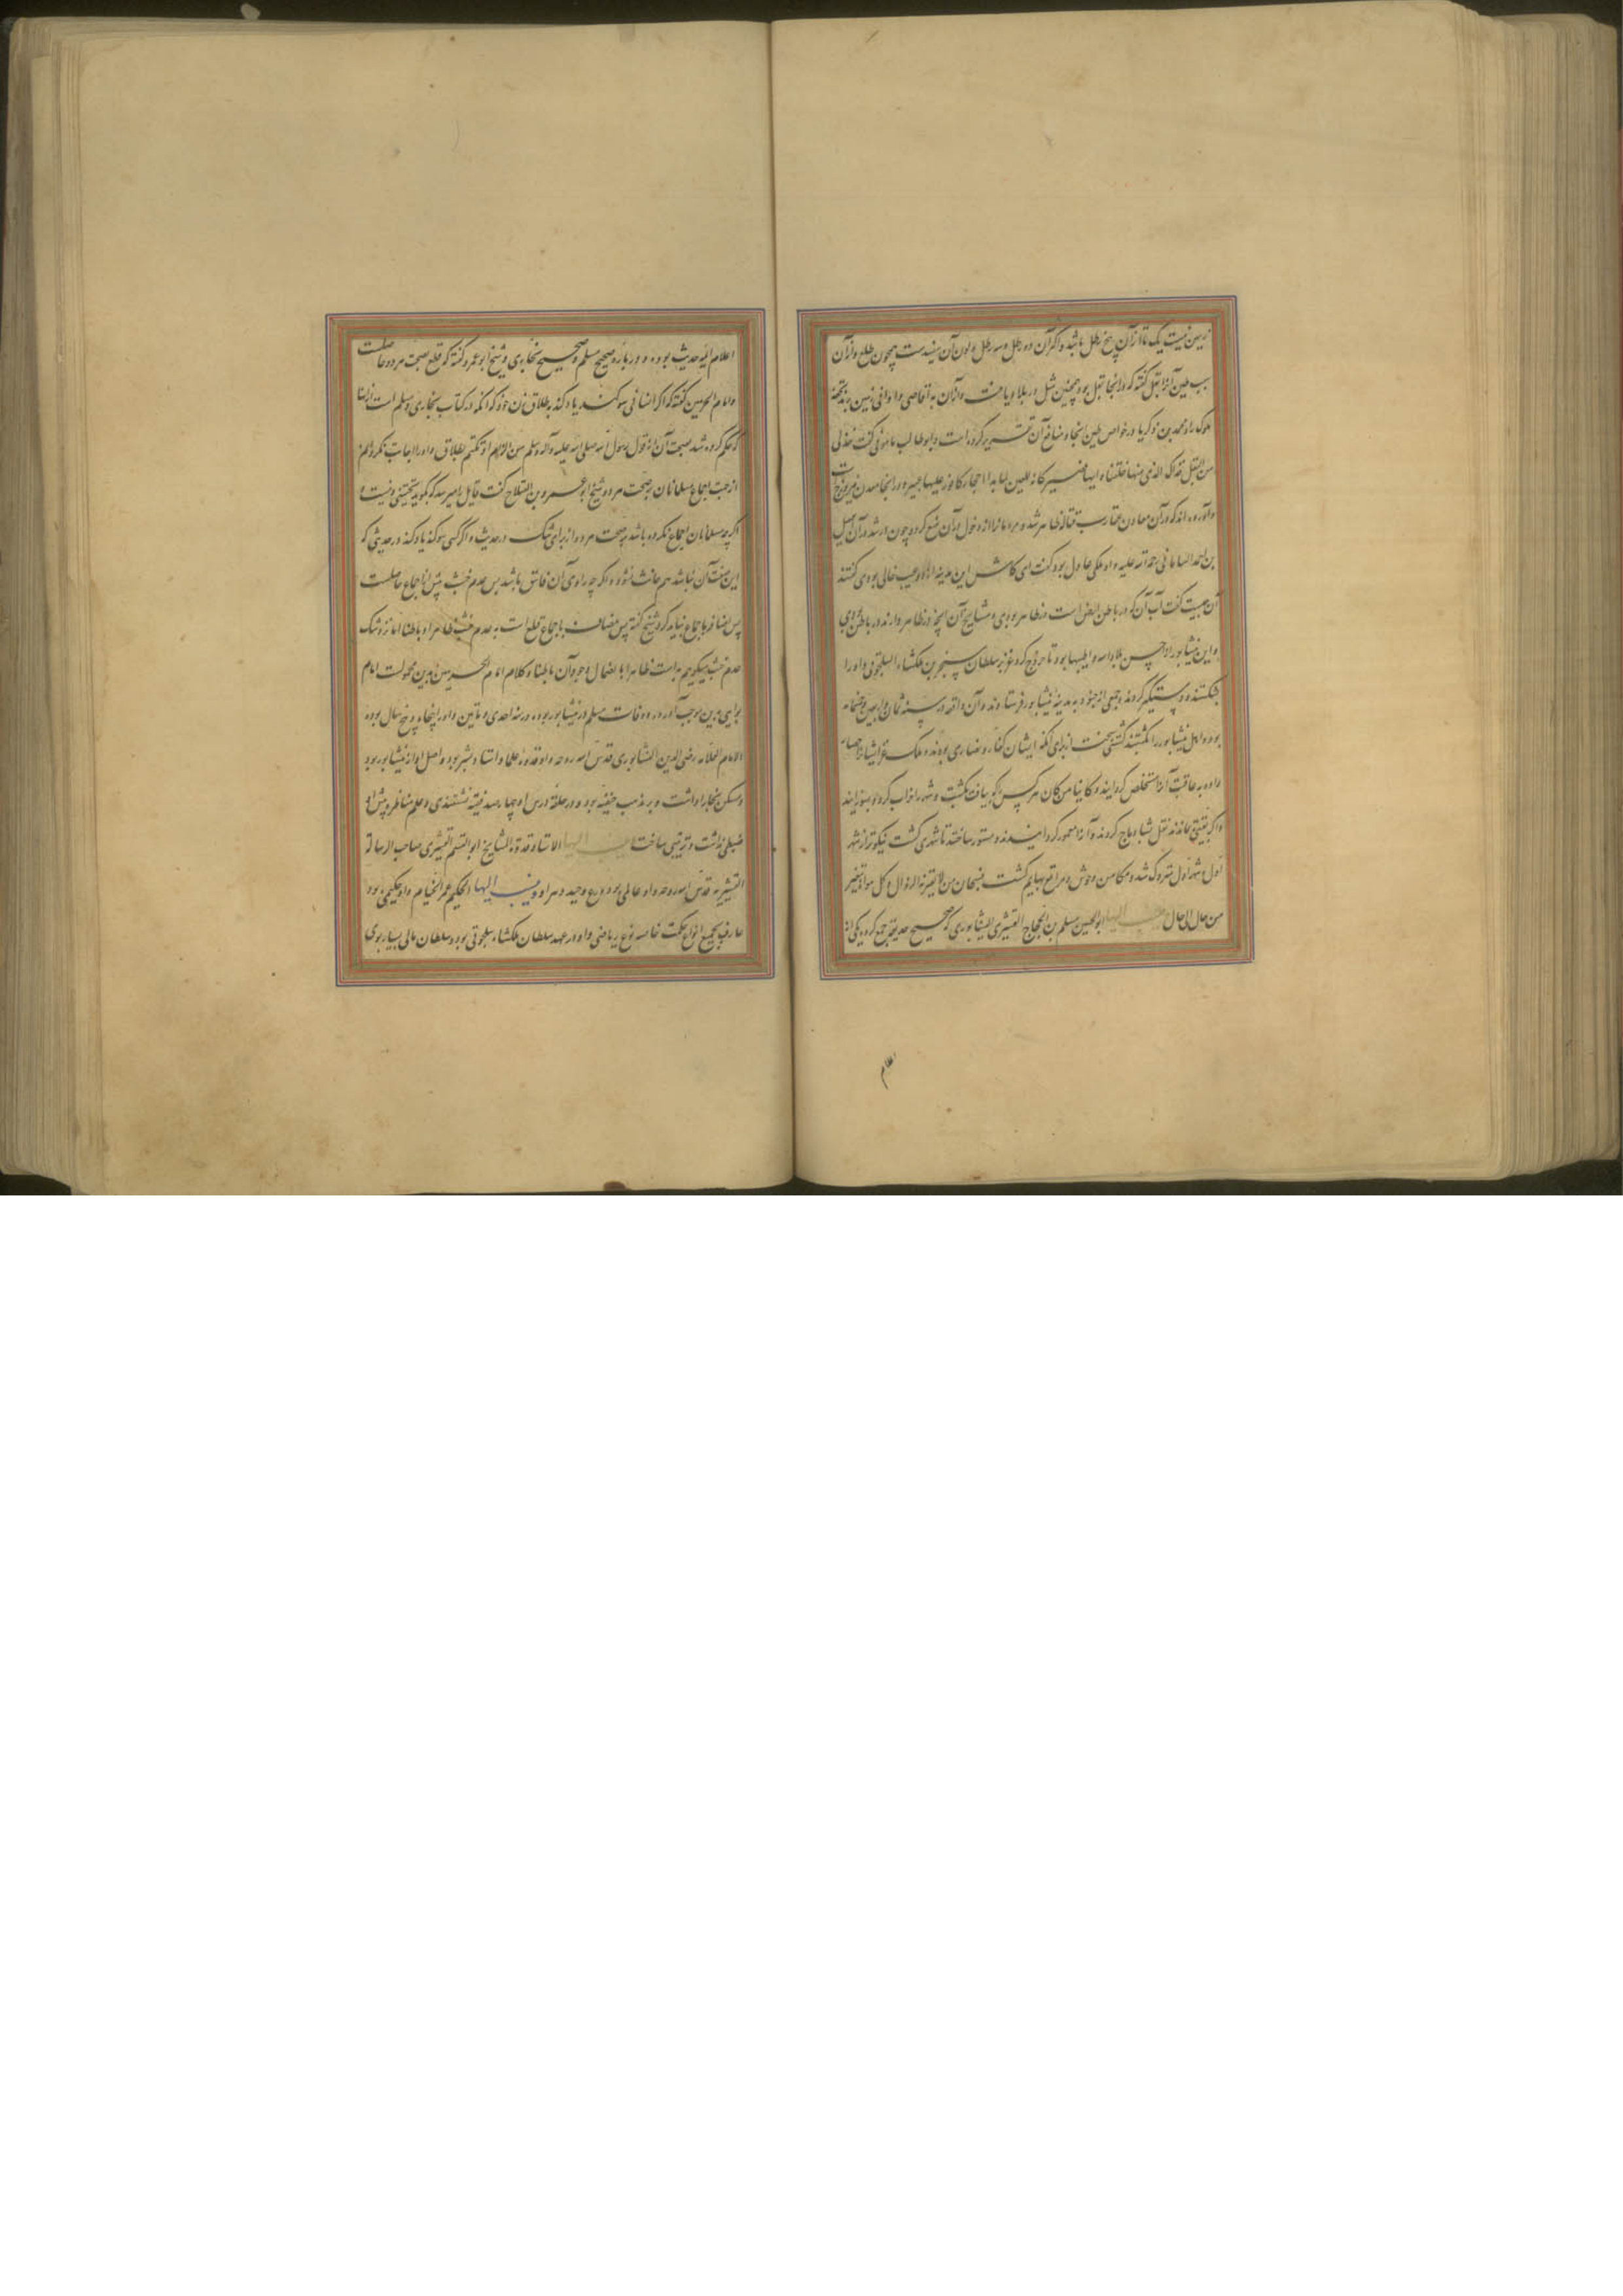 زمین نیست یک تا از آن پنج رطل باشد و اکثر آن دو رطل و سه رطل و لون آن سفیدست همچون طلع و از آن
سبب طین آنرا نقل گفته که در آنجا نقل بود و همچنین مثل در بلاد یافت و از آن به اقاصی و ادانی زمین برند تحفه
ملوک را و محمد بن زکریا در خواص طین آنجا و منافع آن تقریر کرده است و ابو طالب مامونی گفت خذ لی
من النقل فذاک الذی منها خلقنا و الیها نصیر کانه للعین لما بدا احجار کافور علیها عبیر و در آنجا معدن فیروزج است
و آورده اند که در آن معادن عقارب قتاله ظاهر شد و مردمانرا از دخول در آن منع کرد و چون در شد در آن اسمعیل
بن احمد السامانی رحمة الله علیه و او ملکی عادل بود گفت ای کاش این مدینه از دو عیب خالی بودی گفتند
آن چیست گفت آب آن که در باطن ارض است در ظاهر بودی و مشایخ آن که در ظاهر دارند در باطن بودی
و این نیشابور از احسن بلاد الله و اطیبها بود تا خروج کرد غز بر سلطان سنجر بن ملکشاه السلجوقی و او را
بشکستند و دستگیر کردند و جمعی از جنود به مدینه نیشابور فرستادند و آن واقعه در سنه ثمان و اربعین و خمسمایه
بود و اهل نیشابور را بکشتند کشتنی سخت از برای آنکه ایشان کفار و نصاری بودند و ملک غز ایشانرا حصار
داده به عاقبت آنرا مستخلص گردانیدند و کاینا من کان هر کس را که بیافت بکشت و شهر را خراب کرد و بسوزانید
و اگر بقیتی ماندند نقل بشادیاخ کردند و آنرا معمور گردانیدند و مستور ساختند تا شهری گشت نیکوتر از شهر
اول و شهر اول متروک شد و مکامن وحوش و مراتع بهایم گشت فسبحان من لا یعتریه الزوال و کل سواه یتغیر
من حال الی حال ینسب الیها ابو الحسین مسلم بن الحجاج القشیری النیشابوری که صحیح حدیث جمع کرده یکی از
اعلام
اعلام ائمه حدیث بوده و درباره صحیح مسلم و صحیح بخاری و شیخ ابو عمرو گفته که قطع صحت هر دو حاصلست
و امام الحرمین گفته که اگر انسانی سوگند یاد کند به طلاق زن خود که آنکه در کتاب بخاری و مسلم است از آنها
که حکم کرده شد بصحت آن از قول رسول الله صلی الله علیه و آله و سلم من الزام او نکنم بطلاق و او را اجابت نکردم
از جهت اجماع مسلمانان بر صحت هر دو شیخ ابو عمرو بن الصلاح گفت قایل را میرسد که گوید تحقیقی نیست و
اگرچه مسلمانان اجماع نکرده باشند به صحت هر دو از برای شک در حدیث و اگر کسی سوگند یاد کند در حدیثی که
این صفت آن نباشد هم حانث نشود و اگرچه راوی آن فاسق باشد پس عدم حنث پیش از اجماع حاصلست
پس اضافه باجماع نباید کرد شیخ گفته پس مضاف باجماع قطع است به عدم حنث ظاهرا و باطنا اما نزد شک
عدم حنث میگوییم به است ظاهرا با احتمال وجود آن باطنا و کلام امام الحرمین برین محمولست امام
نوای برین موجب آورده و وفات مسلم در نیشابور بوده در سنه احدی و ماتین و او را پنجاه و پنج سال بوده
الامام العلامه رضی الدین النیشابوری قدس الله روحه و او قدوه علما و استاد بشر بود و اصل او از نیشابور بود
و مسکن بخارا داشت و بر مذهب حنیفه بود و در حلقه درس او چهارصد فقیه نشستندی و علم مناظره پیش او
ضبطی داشت و ترتیبی ساخت ینسب الیها الاستاد قدوة المشایخ ابو القسم القشیری صاحب الرسالة
القشیریه قدس الله روحه و او عالمی بود و ورع وحید دهر او و ینسب الیها الحکیم عمر الخیام و او حکیمی بود
عارف بجمیع انواع حکمت خاصه نوع ریاضی و او در عهد سلطان ملکشاه سلجوقی بود و سلطان مالی بسیار بوی